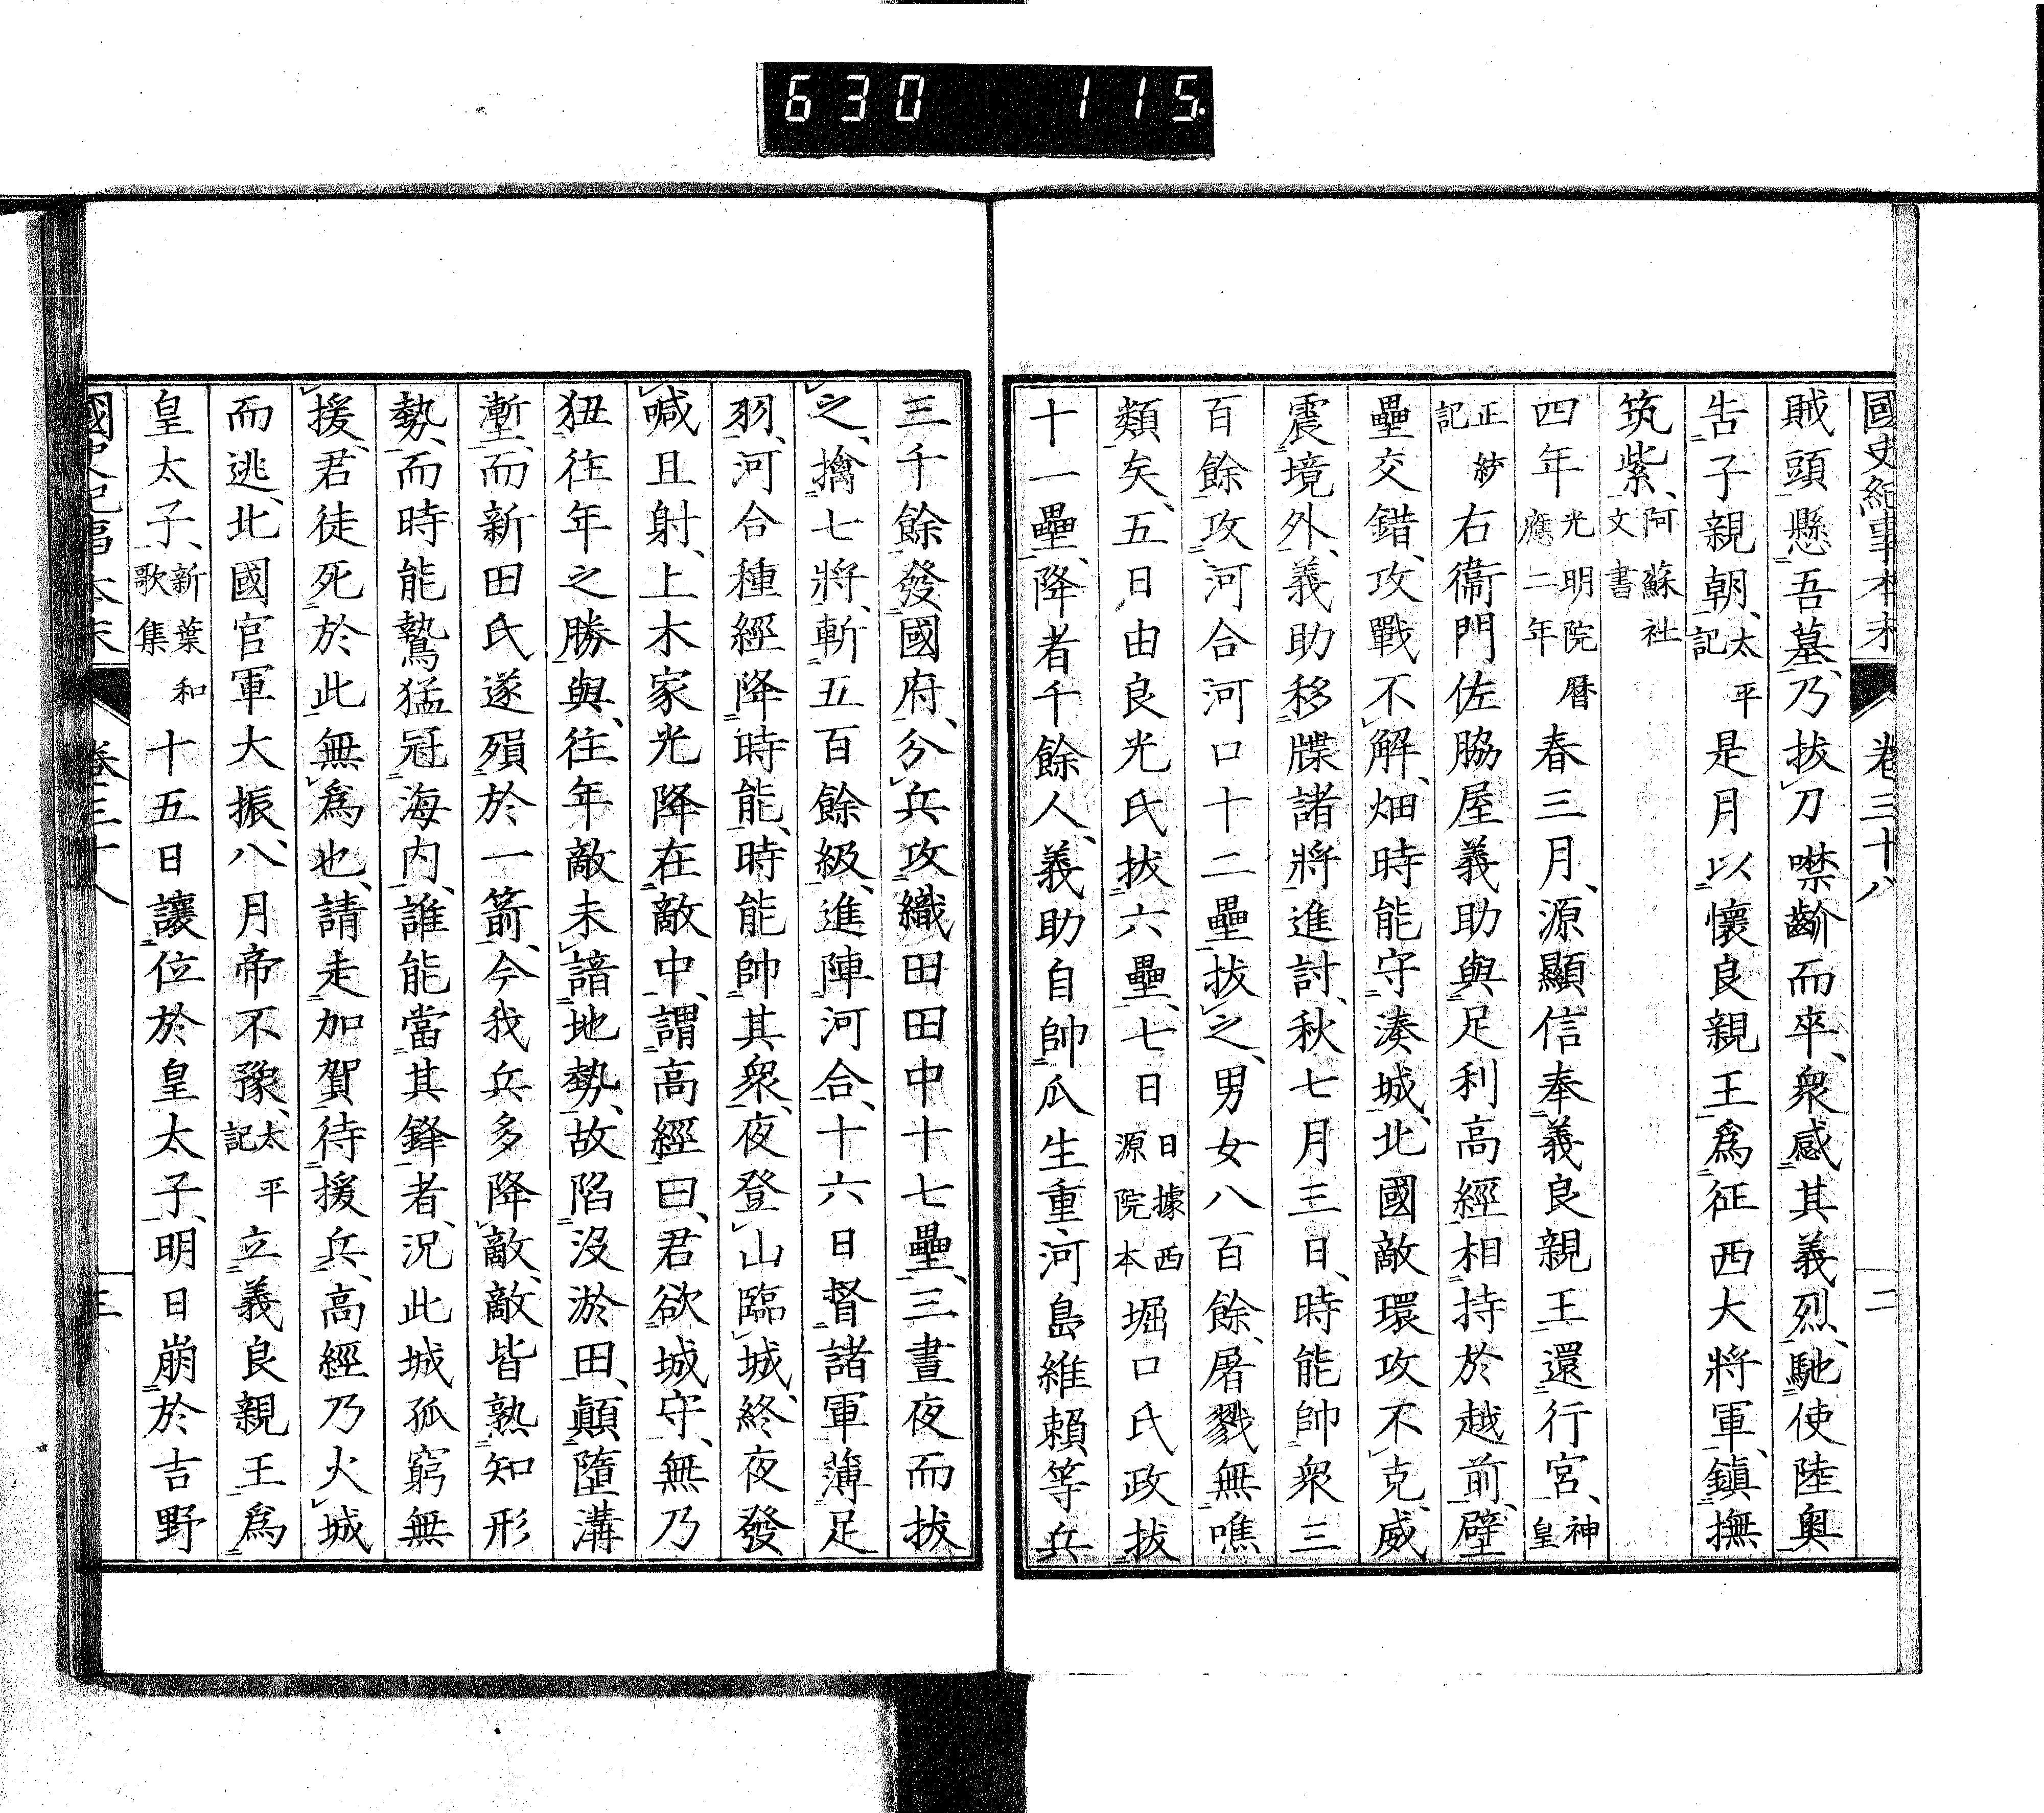 630 115.
國史紀事本末 卷三十八 二
賊頭懸吾墓、乃拔刀噤齡而卒、衆感其義烈、馳使陸奧
告子親朝、太平記是月以懷良親王爲征西大將軍、鎭撫
筑紫、阿蘇社文書
四年光明院曆應二年春三月、源顯信奉義良親王還行宮、神皇
正紗記右衞門佐脇屋義助與足利高經相持於越前、壁
壘交錯、攻戰不解、畑時能守湊城、北國敵環攻不克、威
震境外、義助移牒諸將進討、秋七月三日、時能帥衆三
百餘攻河合河口十二壘拔之、男女八百餘、屠戮無噍
類矣、五日由良光氏拔六壘、七日日據西源院本堀口氏政拔
十一壘、降者千餘人、義助自帥瓜生重、河島維賴等兵
三千餘、發國府、分兵攻織田田中十七壘、三晝夜而拔
之、擒七將、斬五百餘級、進陣河合、十六日督諸軍薄足
羽、河合種經降時能、時能帥其衆、夜登山臨城、終夜發
喊且射、上木家光降在敵中、謂高經曰、君欲城守、無乃
狃往年之勝與、往年敵未諳地勢、故陷沒淤田、顚墮溝
塹、而新田氏遂殞於一箭、今我兵多降敵、敵皆熟知形
勢、而時能鷙猛冠海内、誰能當其鋒者、況此城孤窮無
援、君徒死於此、無爲也、請走加賀待援兵、高經乃火城
而逃、北國官軍大振、八月帝不豫、太平記立義良親王爲
皇太子、新葉和歌集十五日讓位於皇太子、明日崩於吉野
國史紀事本末 卷三十八 三